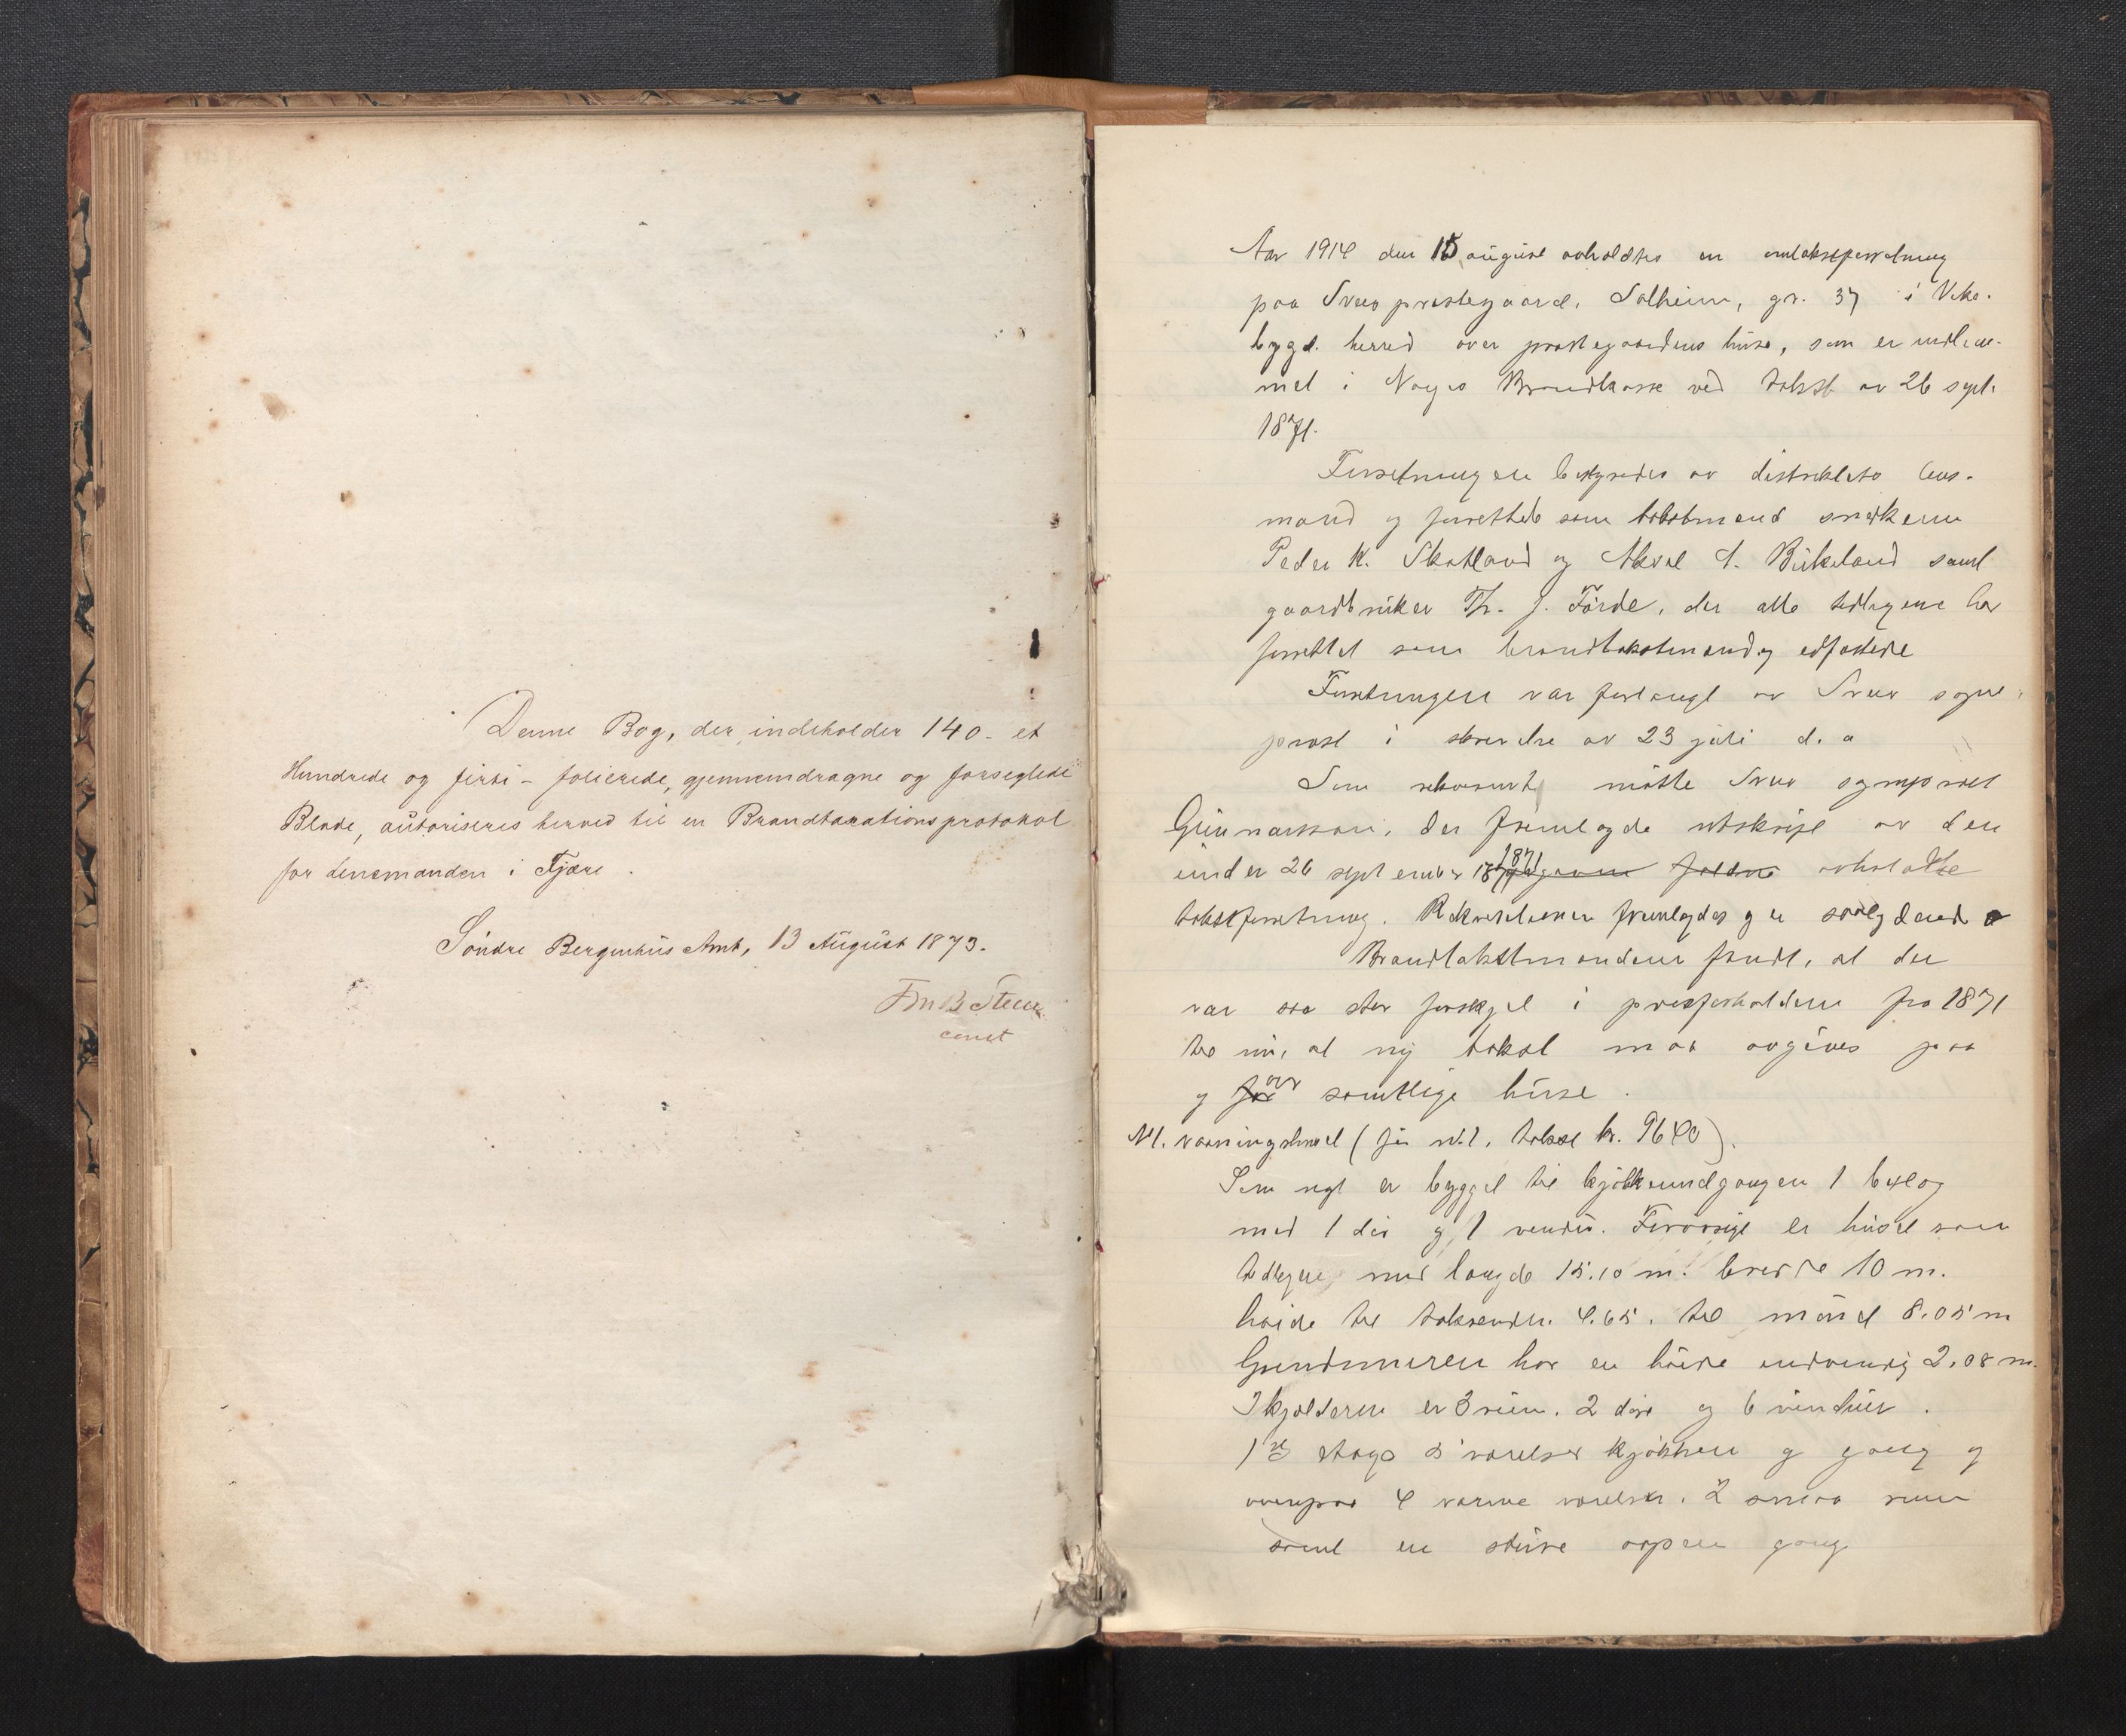 Denne Bog, der indeholder 140 - et
Hundrede og firti - folierede, gjennemdragne og forseglede
Blade, autoriseres herved til en Brandtaxationsprotokol
for Lensmanden i Fjære.
Söndre Bergenhus Amt, 13 August 1873.
const
Aar 1914 den 15 august avholdtes en omtakstforretning
paa Sveo prestegaard, Solheim, gr. 37 i Viks-
bygd. herred over prestegaardens huse, som er indlem-
met i Norges Brandkasse ved takst av 26 sept.
1871.
Forretningen bestyredes av distriktets lens-
mand og forrettede som takstmænd snedkerne
Peder K. Skatland og Aksel A. Birkeland samt
gaardbruker Th. J. Förde, der alle tidligere har
forrettet som brandtakstmænd og edfæstede
Forretningen var forlangt av Sveo sogne-
prest i skrivelse av 23 juli d. a
Som rekvirent mötte Sveo sogneprest
Gunnarson, der fremlagde utskrift av den
under 26 september 1871 avholdte
takstforretning. Rekvisitionen fremlagdes og er saalydende
Brandtakstmændene fandt, at der
var saa stor forskjel i prisforholdene fra 1871
til nu, at ny takst maa avgives paa
og for over samtlige huse.
N1. vaaningshuset (för no. 1, takst kr. 9640).
Som nyt er bygget til kjökkenindgangen 1 bislag
med 1 dör og 1 vindu. Forövrigt er huset som
tidligere med længde 15.10 m. bredde 10 m.
höide til takrenden 4.65. til mönet 8.05 m
Grundmuren har en höide indvendig 2.08 m.
I kjelderen er 3 rum. 2 döre og 6 vinduer.
1ste etage 5 værelser kjökken og gang og
ovenpaa 4 varme værelser. 2 smaa rum
samt en större aapen gang